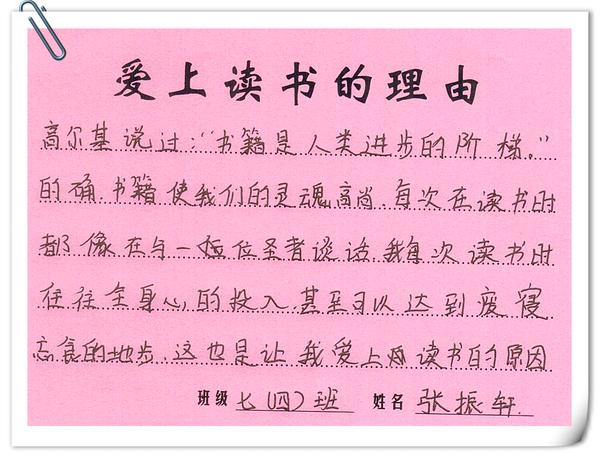 爱上读书的理由
高尔基说过:“书籍是人类进步的阶梯。”
的确,书籍使我们的灵魂高尚,每次在读书时
都像在与一位位圣者谈话,我每次读书时
往往全身心的投入,甚至可以达到废寝
忘食的地步,这也是让我爱上读书的原因
班级 七(四)班 姓名 张振轩